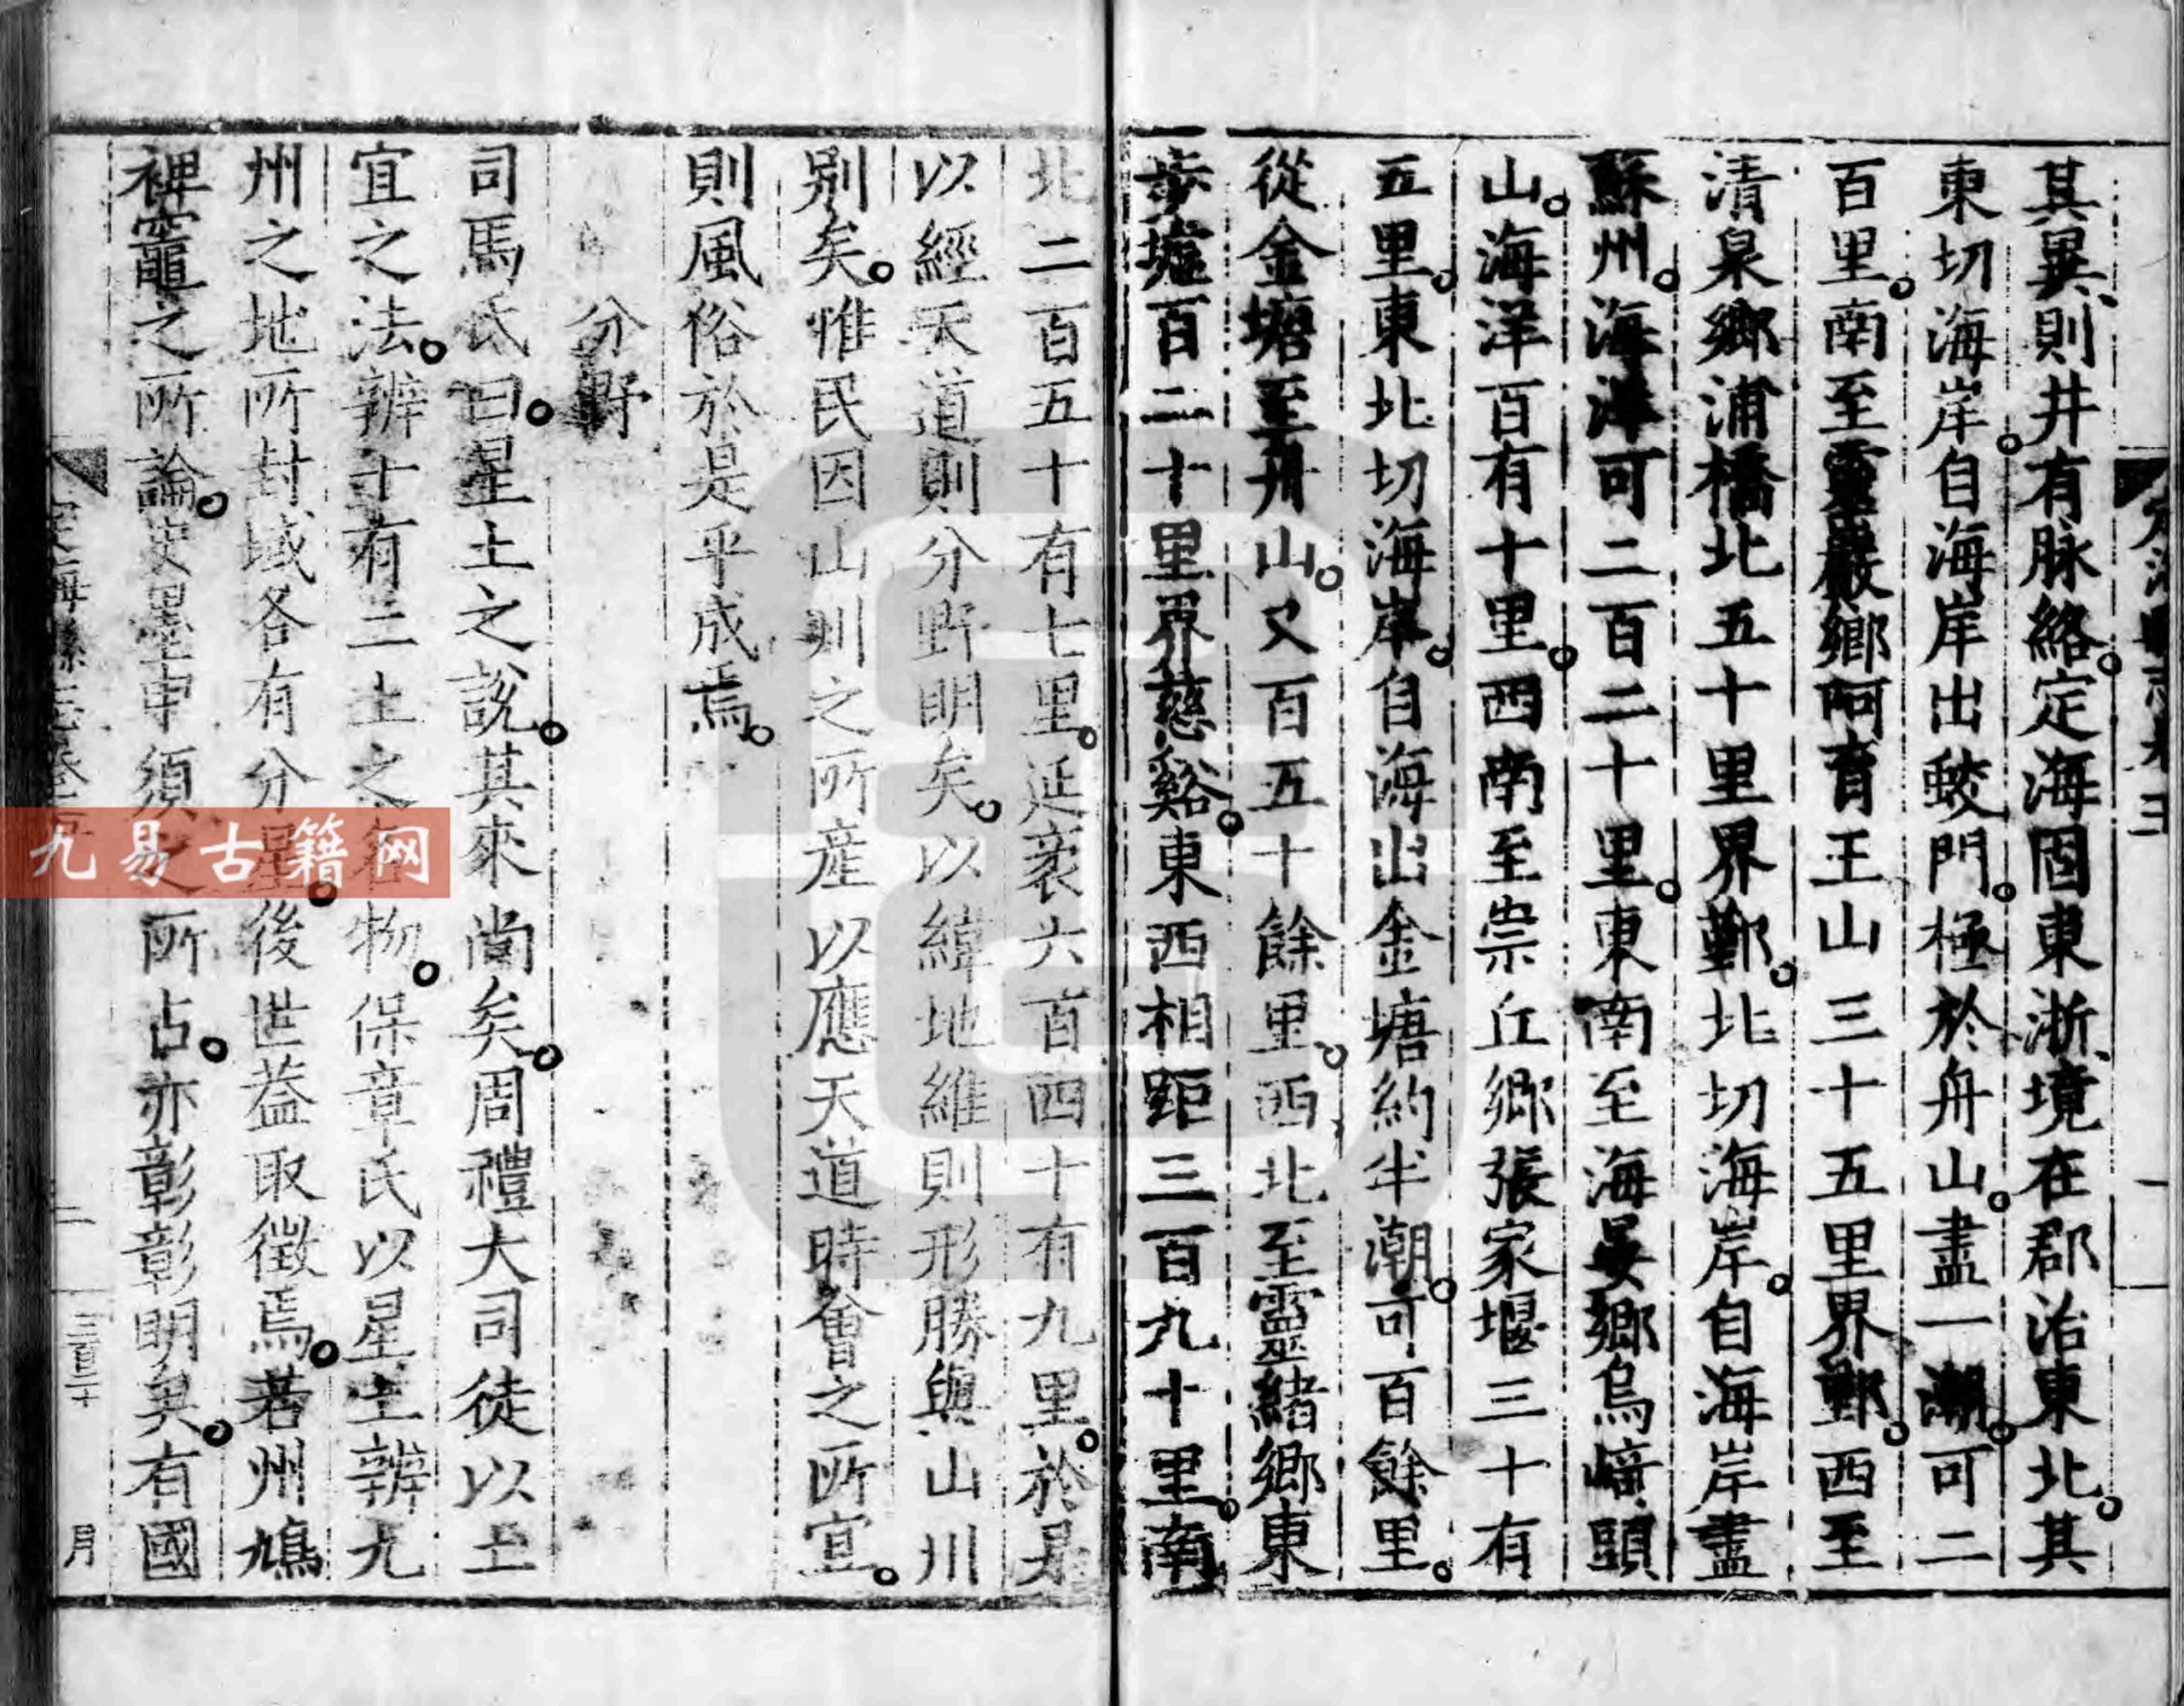 其異則井有脉絡定海固東浙境在郡治東北其
東切海岸自海岸出蛟門極於舟山盡一潮可二
百里南至靈巖鄉阿育王山三十五里界鄞西至
清泉鄉浦橋北五十里界鄞北切海岸自海岸盡
蘇州海洋可二百二十里東南至海晏鄉烏﨑頭
山海洋百有十里西南至崇丘鄉張家堰三十有
五里東北切海岸自海出金塘約半潮可百餘里
從金塘至舟山又百五十餘里西北至靈緒鄉東
步墟百二十里界慈谿東西相距三百九十里南
北二百五十有七里延袤六百四十有九里於是
以經天道則分野明矣以緯地維則形勝與山川
别矣惟民因山川之所產以應天道時會之所宜
則風俗於是乎成焉
分野
司馬氏曰星土之說其來尚矣周禮大司徒以土
宜之法辨十有二土之名物保章氏以星土辨九
州之地所封域各有分星後世葢取徵焉若州鳩
裨竈之所論史墨申須之所占亦彰彰明矣有國
定海縣志卷三
二
三百三十
月
九易古籍网